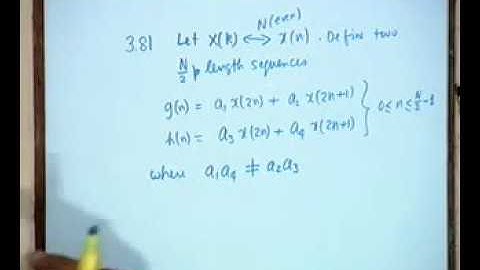 N(even)
3.81 Let X(k) ⟷ x(n). Define two
N/2 p length sequences
g(n) = a₁ x(2n) + a₂ x(2n+1)
h(n) = a₃ x(2n) + a₄ x(2n+1) } 0 ≤ n ≤ N/2 - 1
where a₁a₄ ≠ a₂a₃